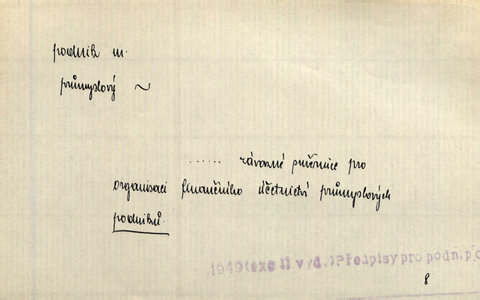 podnik m.
průmyslový ~
...... závazné směrnice pro
organisaci finančního účetnictví průmyslových
podniků.
1949 (exc II v/d.) Předpisy pro podn. poč
8